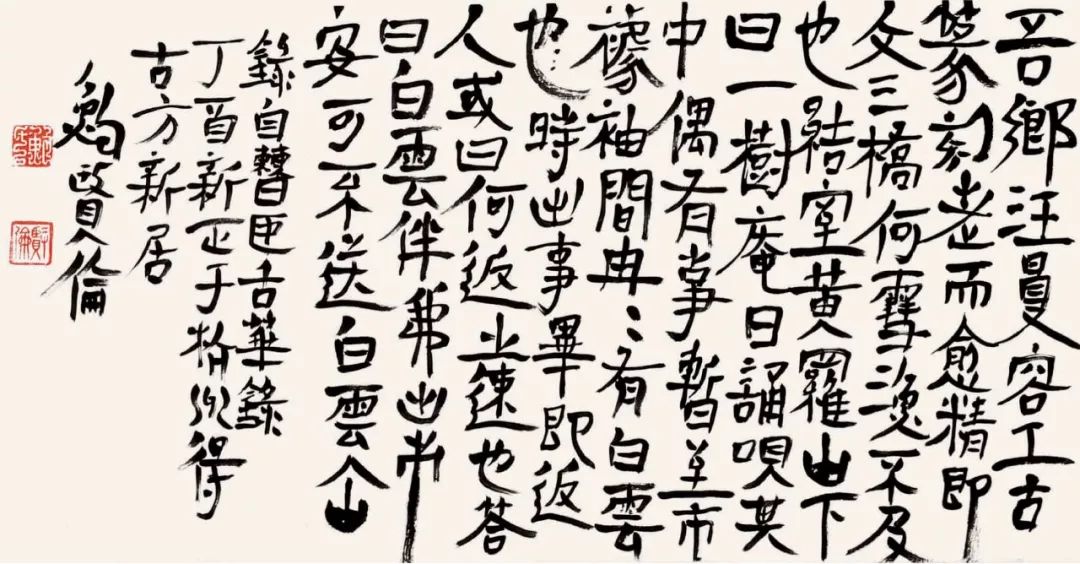 吾鄉汪曼容工古
篆刻老而愈精即
文三橋何雪漁不及
也結室黃羅山下
曰一樹庵日誦唄其
中偶有事暫至市
襟袖間冉〻有白雲
也時出事畢即返
人或曰何返之速也答
曰白雲伴弗出市
安可不送白雲入山
錄自曹臣舌華錄
丁酉新正于得
古方新居
賢倫